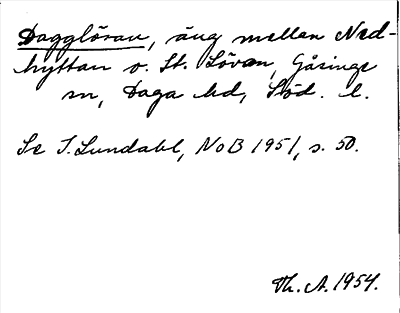 Dagglövan, äng mellan Ned-
hyttan o. St. Lövan, Gåsinge
sn, Daga hd, Söd. l.
Se I. Lundahl, NoB 1951, s. 50.
Th. A. 1954.